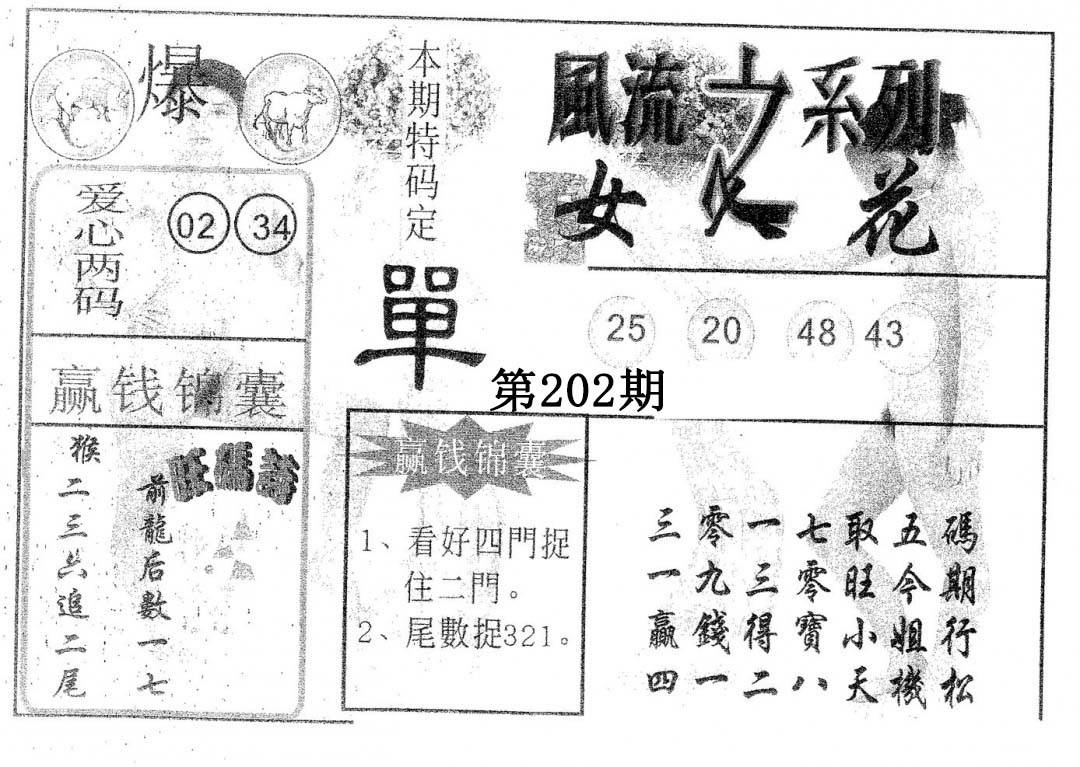 爆
爱心两码
02 34
赢钱锦囊
猴二三六追二尾
前龍后數一七
本期特码定
單
第202期
赢钱锦囊
1、看好四門捉
住二門。
2、尾數捉321。
風流之系列
女人花
25 20 48 43
三零一七取五碼
一九三零旺今期
贏錢得寶小姐行
四一二八天機松